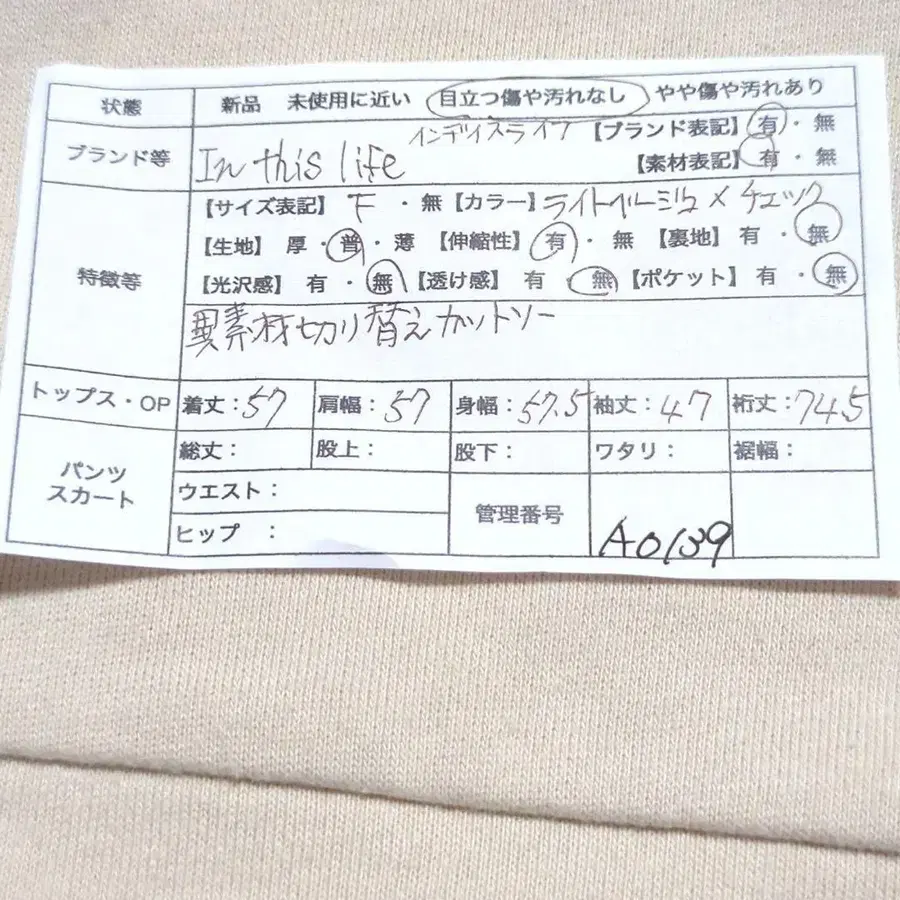 状態 新品 未使用に近い 目立つ傷や汚れなし やや傷や汚れあり
ブランド等 In this life インディスライフ 【ブランド表記】 有・無
【素材表記】 有・無
特徴等
【サイズ表記】 F ・無 【カラー】 ライトベージュ×チェック
【生地】 厚・普・薄 【伸縮性】 有・無 【裏地】 有・無
【光沢感】 有・無 【透け感】 有・無 【ポケット】 有・無
異素材切り替えカットソー
トップス・OP 着丈:57 肩幅:57 身幅:57.5 袖丈:47 裄丈:74.5
パンツ
スカート
総丈: 股上: 股下: ワタリ: 裾幅:
ウエスト:
ヒップ :
管理番号 A0139